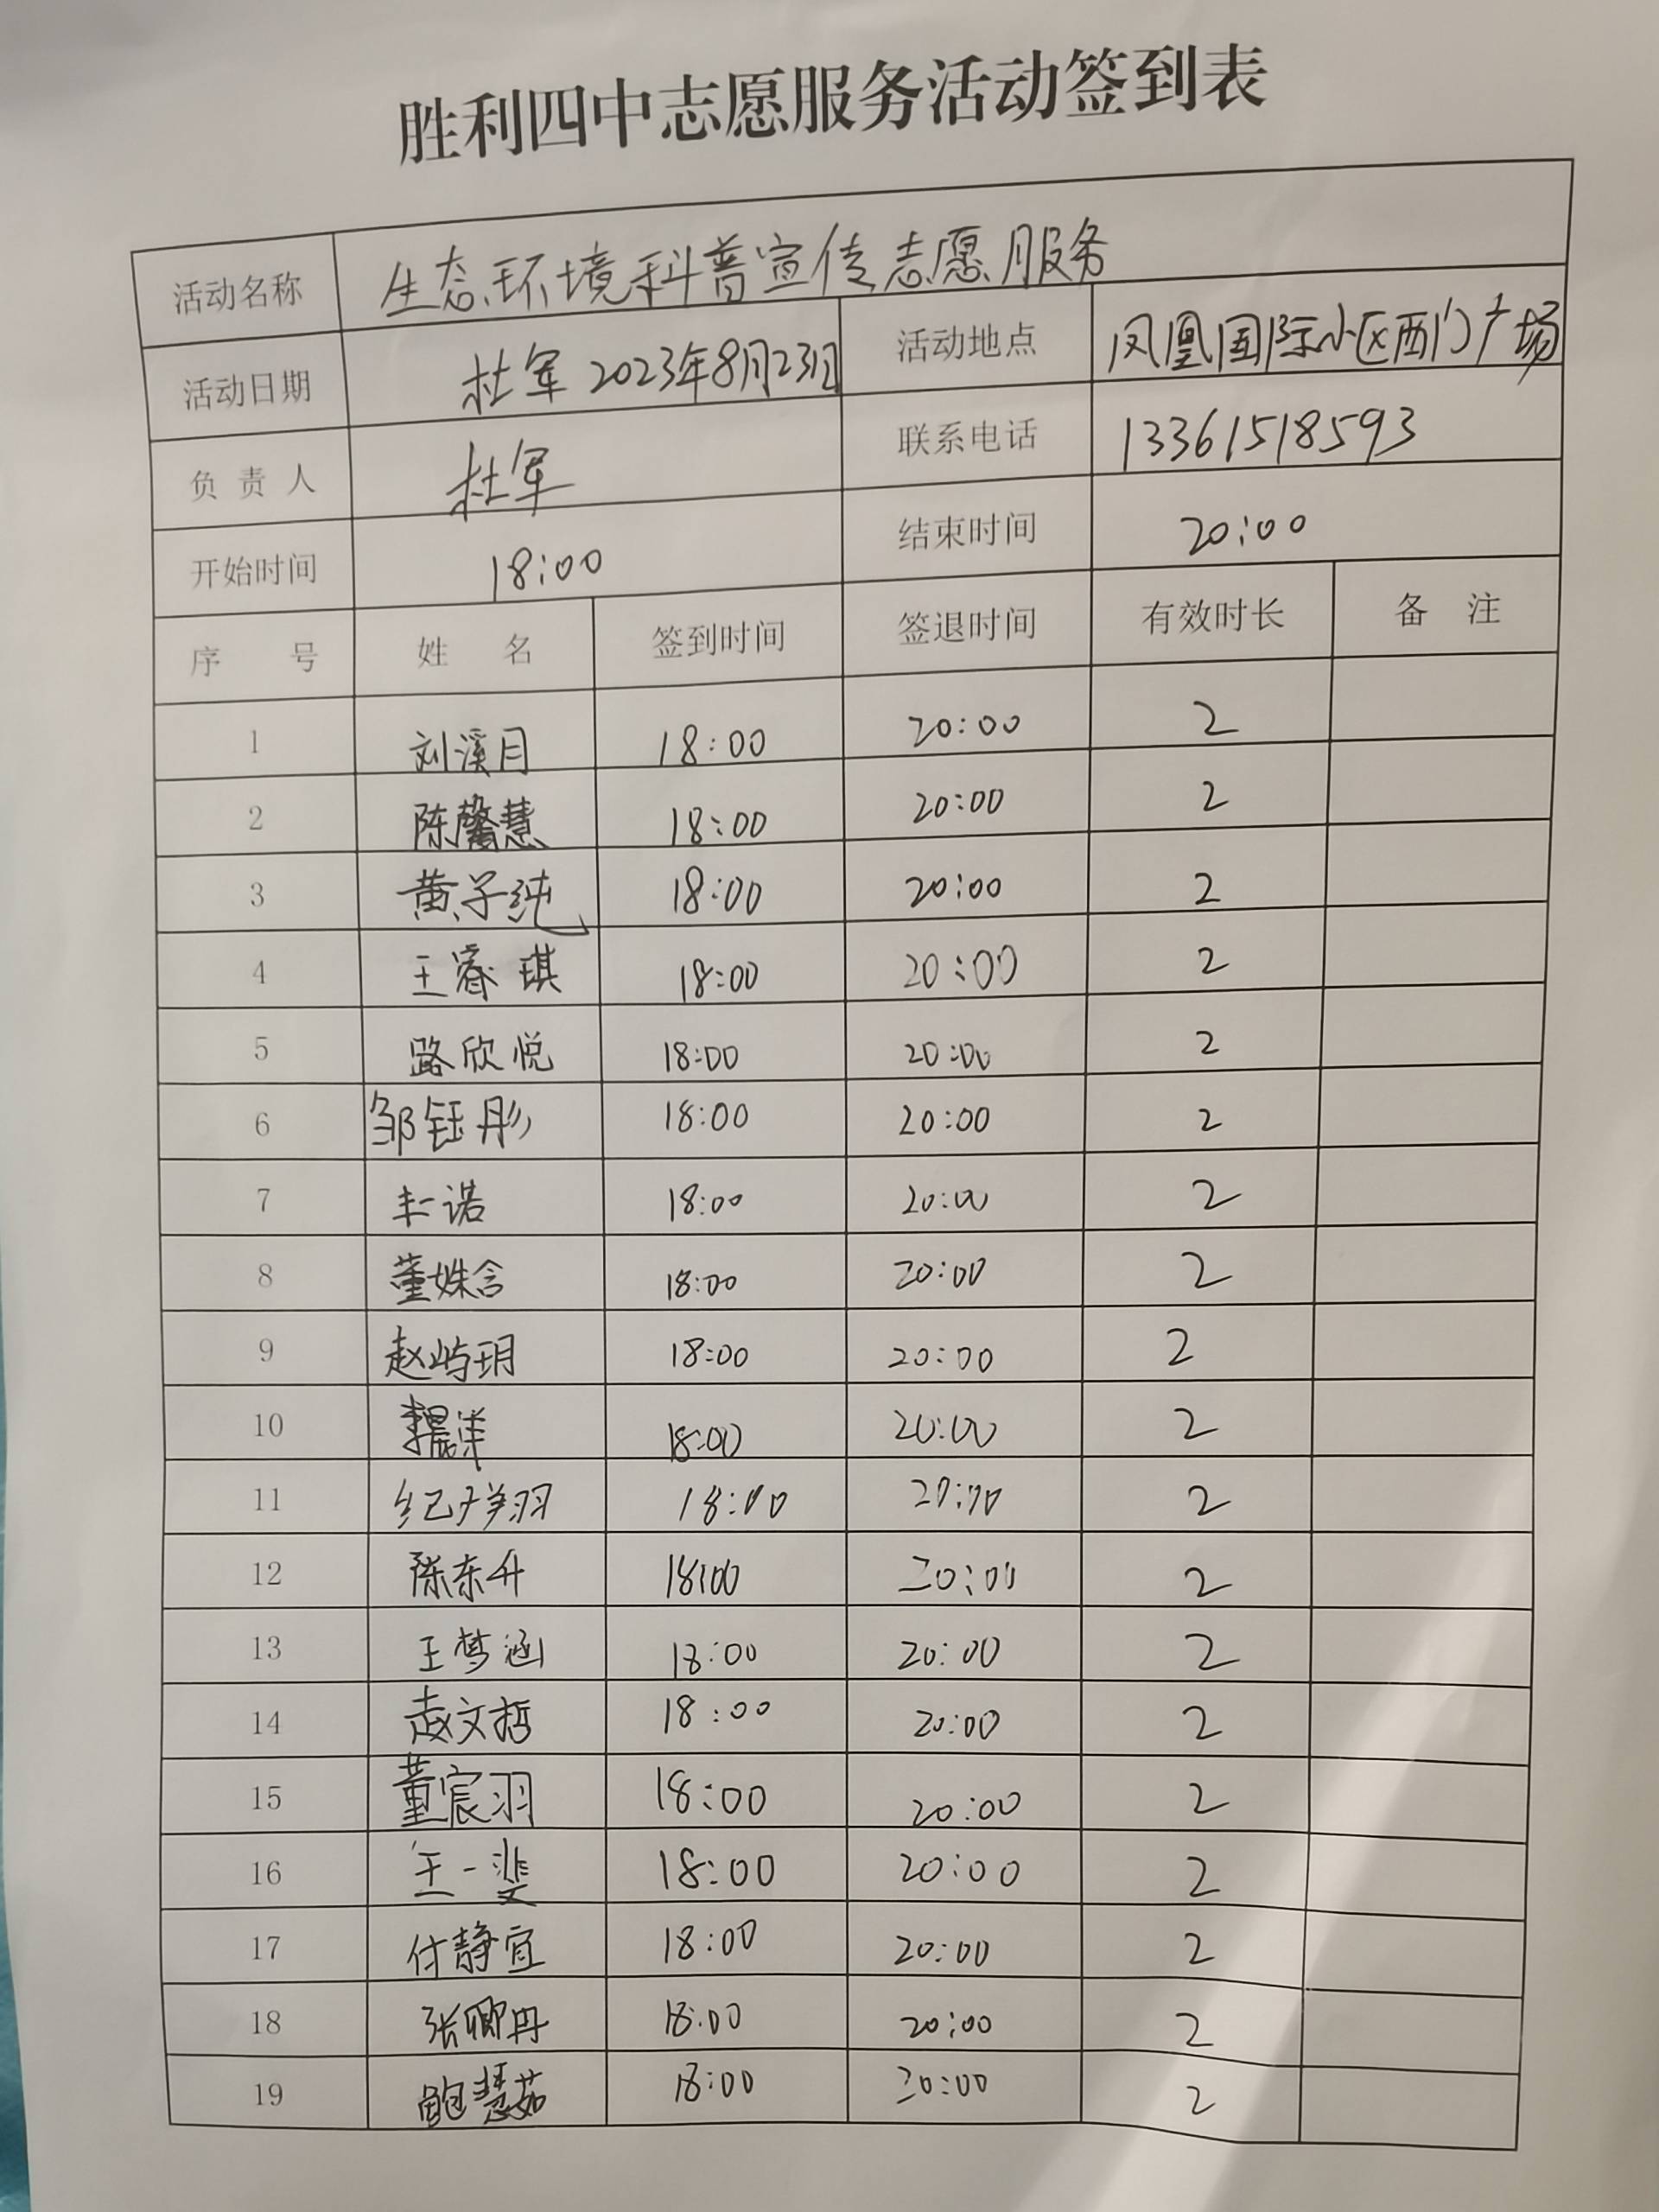 胜利四中志愿服务活动签到表
活动名称 生态环境科普宣传志愿服务
活动日期 杜军 2023年8月23日 活动地点 凤凰国际小区西门广场
负责人 杜军 联系电话 13361518593
开始时间 18:00 结束时间 20:00
序号 姓名 签到时间 签退时间 有效时长 备注
1 刘溪月 18:00 20:00 2
2 陈馨慧 18:00 20:00 2
3 黄子纯 18:00 20:00 2
4 王睿琪 18:00 20:00 2
5 路欣悦 18:00 20:00 2
6 邹钰彤 18:00 20:00 2
7 一诺 18:00 20:00 2
8 董姝含 18:00 20:00 2
9 赵屿玥 18:00 20:00 2
10 李晨洋 18:00 20:00 2
11 纪祥羽 18:00 20:00 2
12 陈东升 18:00 20:00 2
13 王梦涵 18:00 20:00 2
14 赵文哲 18:00 20:00 2
15 董宸羽 18:00 20:00 2
16 王一斐 18:00 20:00 2
17 付静宜 18:00 20:00 2
18 张卿丹 18:00 20:00 2
19 鲍慧茹 18:00 20:00 2